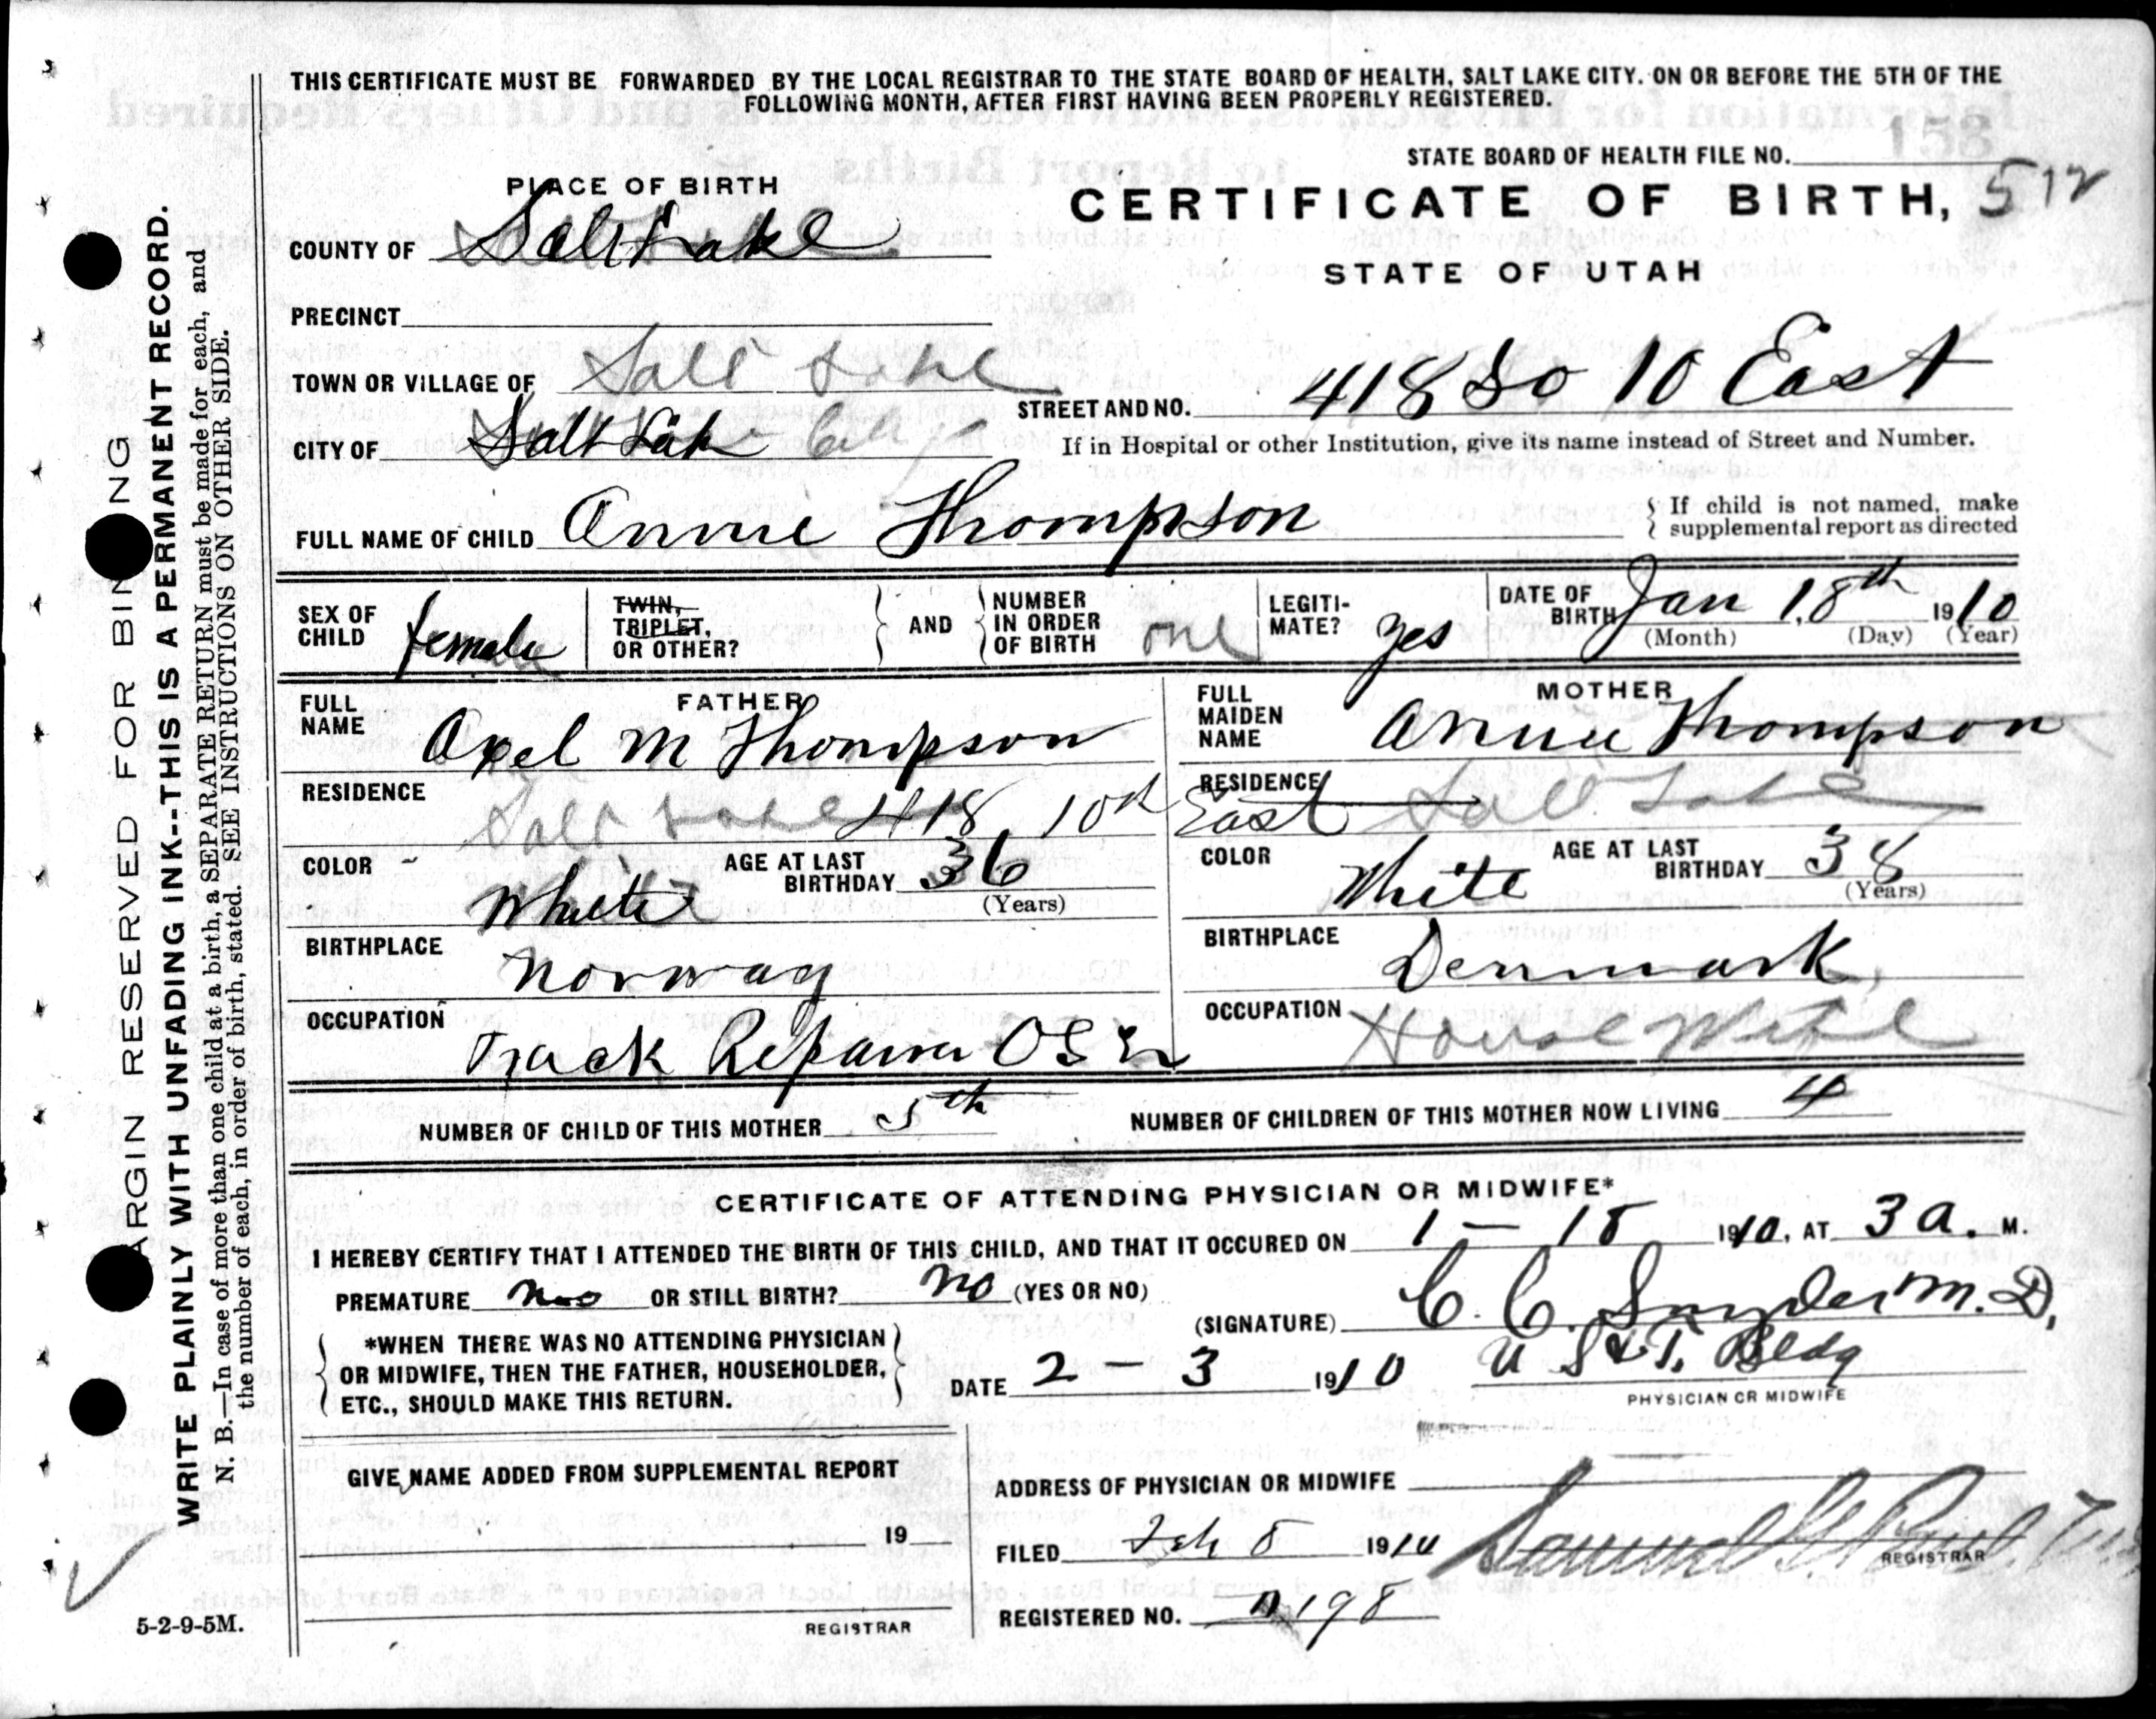 THIS CERTIFICATE MUST BE FORWARDED BY THE LOCAL REGISTRAR TO THE STATE BOARD OF HEALTH, SALT LAKE CITY, ON OR BEFORE THE 5TH OF THE
FOLLOWING MONTH, AFTER FIRST HAVING BEEN PROPERLY REGISTERED.
STATE BOARD OF HEALTH FILE NO.
512
PLACE OF BIRTH
CERTIFICATE OF BIRTH,
STATE OF UTAH
COUNTY OF Salt Lake
PRECINCT
TOWN OR VILLAGE OF Salt Lake
STREET AND NO. 418 So 10 East
CITY OF Salt Lake City
If in Hospital or other Institution, give its name instead of Street and Number.
FULL NAME OF CHILD Annie Thompson
If child is not named, make
supplemental report as directed
SEX OF CHILD female
TWIN, TRIPLET, OR OTHER?
AND NUMBER IN ORDER OF BIRTH one
LEGITI-MATE? yes
DATE OF BIRTH Jan 18th 1910
(Month) (Day) (Year)
FATHER
FULL NAME Axel M Thompson
RESIDENCE Salt Lake 418 10th East
COLOR White
AGE AT LAST BIRTHDAY 36
(Years)
BIRTHPLACE Norway
OCCUPATION Track Repairer OSL
MOTHER
FULL MAIDEN NAME Annie Thompson
RESIDENCE Salt Lake
COLOR White
AGE AT LAST BIRTHDAY 38
(Years)
BIRTHPLACE Denmark
OCCUPATION House Wife
NUMBER OF CHILD OF THIS MOTHER 5th
NUMBER OF CHILDREN OF THIS MOTHER NOW LIVING 4
CERTIFICATE OF ATTENDING PHYSICIAN OR MIDWIFE*
I HEREBY CERTIFY THAT I ATTENDED THE BIRTH OF THIS CHILD, AND THAT IT OCCURED ON 1 - 18 1910, AT 3 a. M.
PREMATURE no OR STILL BIRTH? no (YES OR NO)
(SIGNATURE) C. C. Snyder M. D,
*WHEN THERE WAS NO ATTENDING PHYSICIAN
OR MIDWIFE, THEN THE FATHER, HOUSEHOLDER,
ETC., SHOULD MAKE THIS RETURN.
DATE 2 - 3 1910
U S & T. Bldg
PHYSICIAN OR MIDWIFE
GIVE NAME ADDED FROM SUPPLEMENTAL REPORT
19
REGISTRAR
ADDRESS OF PHYSICIAN OR MIDWIFE
FILED Feb 8 1910
Samuel G Paul
REGISTRAR
REGISTERED NO. 198
5-2-9-5M.
MARGIN RESERVED FOR BINDING
WRITE PLAINLY WITH UNFADING INK--THIS IS A PERMANENT RECORD.
N. B.—In case of more than one child at a birth, a SEPARATE RETURN must be made for each, and
the number of each, in order of birth, stated. SEE INSTRUCTIONS ON OTHER SIDE.